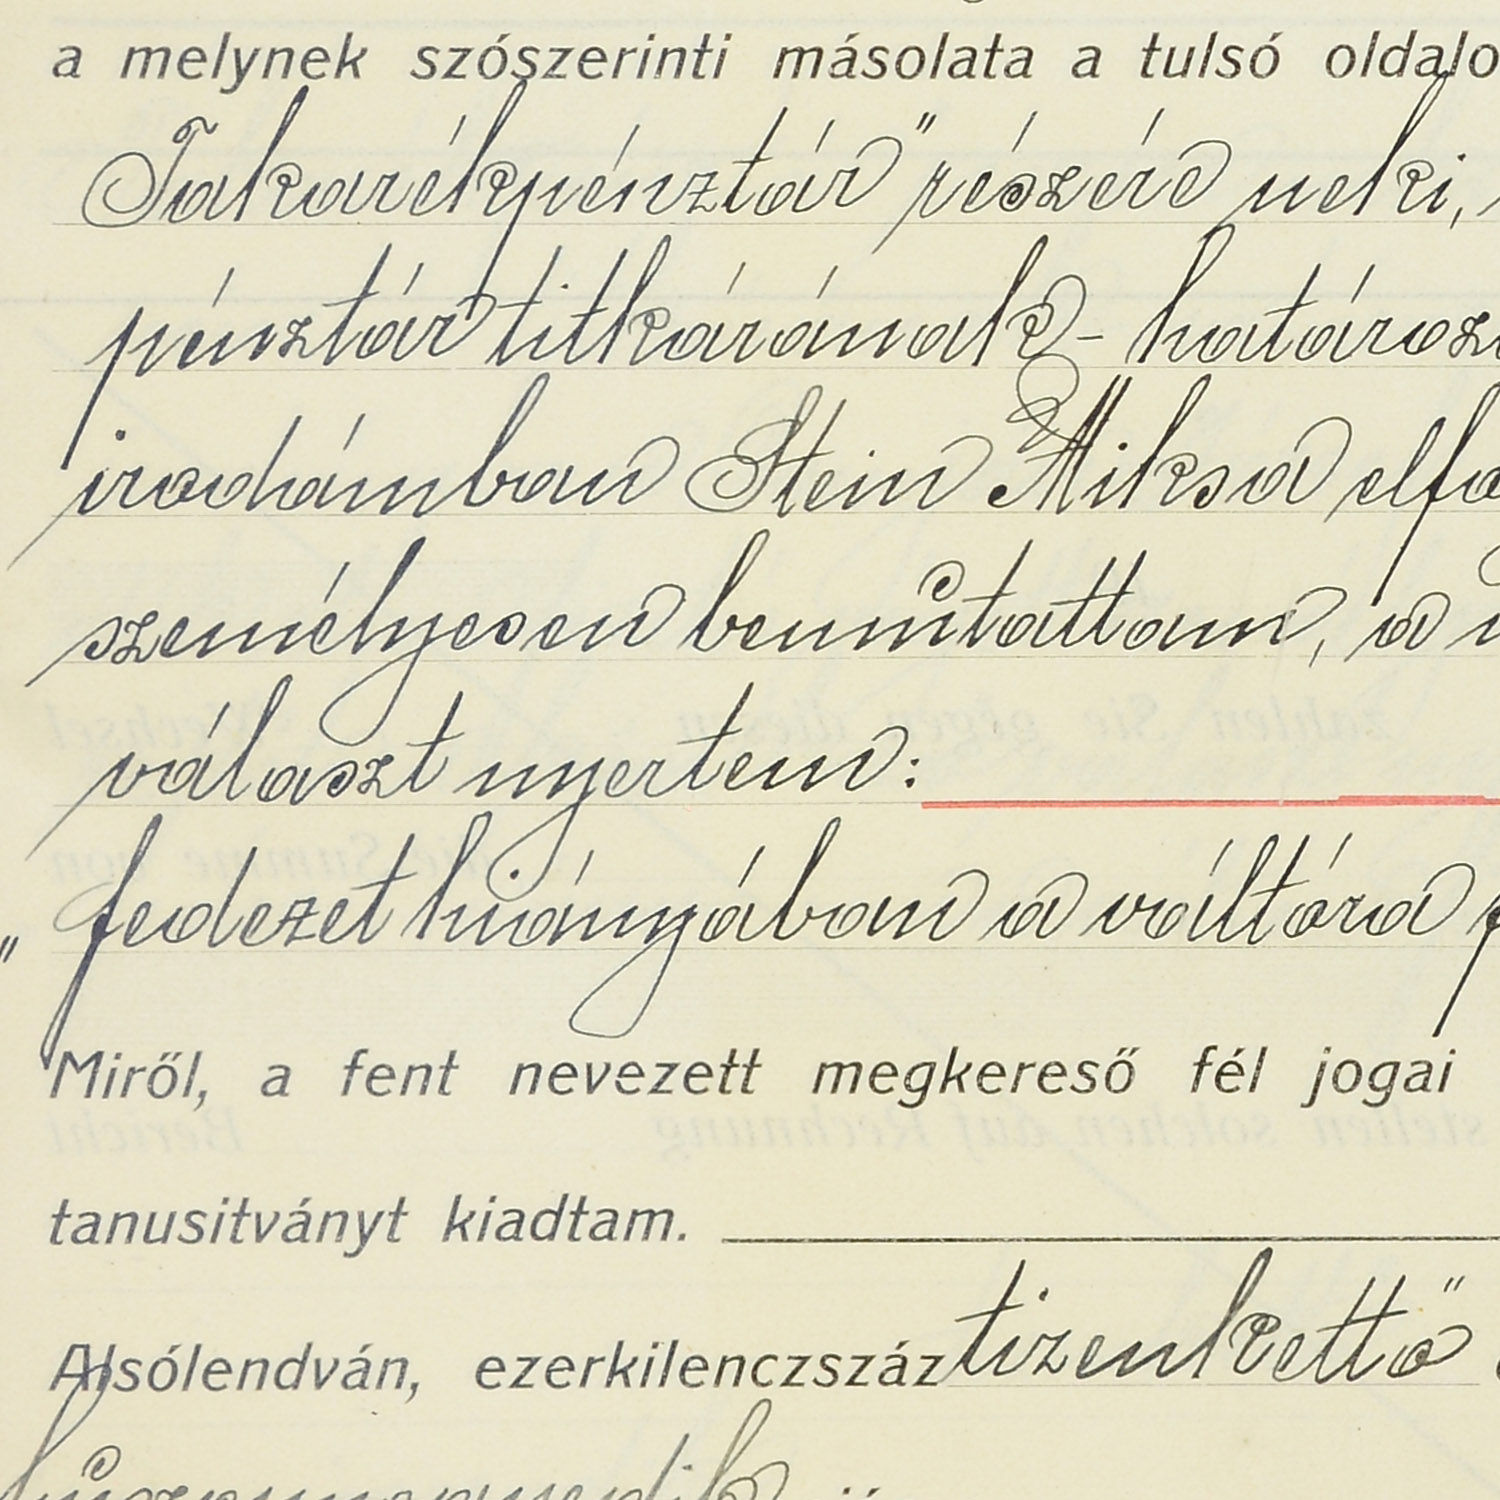 a melynek szószerinti másolata a tulsó oldalo
Takarékpénztár" részére neki,
pénztár titkárának - határoz
irodámban Stein Miksa elfo
személyesen bemutattam, a
választ nyertem:
„fedezet hiányában a váltóra
Miről, a fent nevezett megkereső fél jogai
tanusitványt kiadtam.
Alsólendván, ezerkilenczszáz tizenkettő
huszonnegyedik